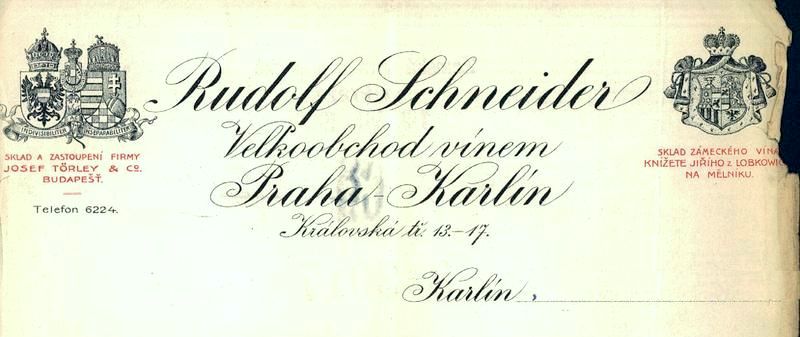 INDIVISIBILITER AC INSEPARABILITER
SKLAD A ZASTOUPENÍ FIRMY
JOSEF TÖRLEY & Cº.
BUDAPEŠŤ.
Telefon 6224.
Rudolf Schneider
Velkoobchod vínem
Praha-Karlín
Královská tř. 13.-17.
Karlín
SKLAD ZÁMECKÉHO VÍNA
KNÍŽETE JIŘÍHO z LOBKOWIC
NA MĚLNÍKU.